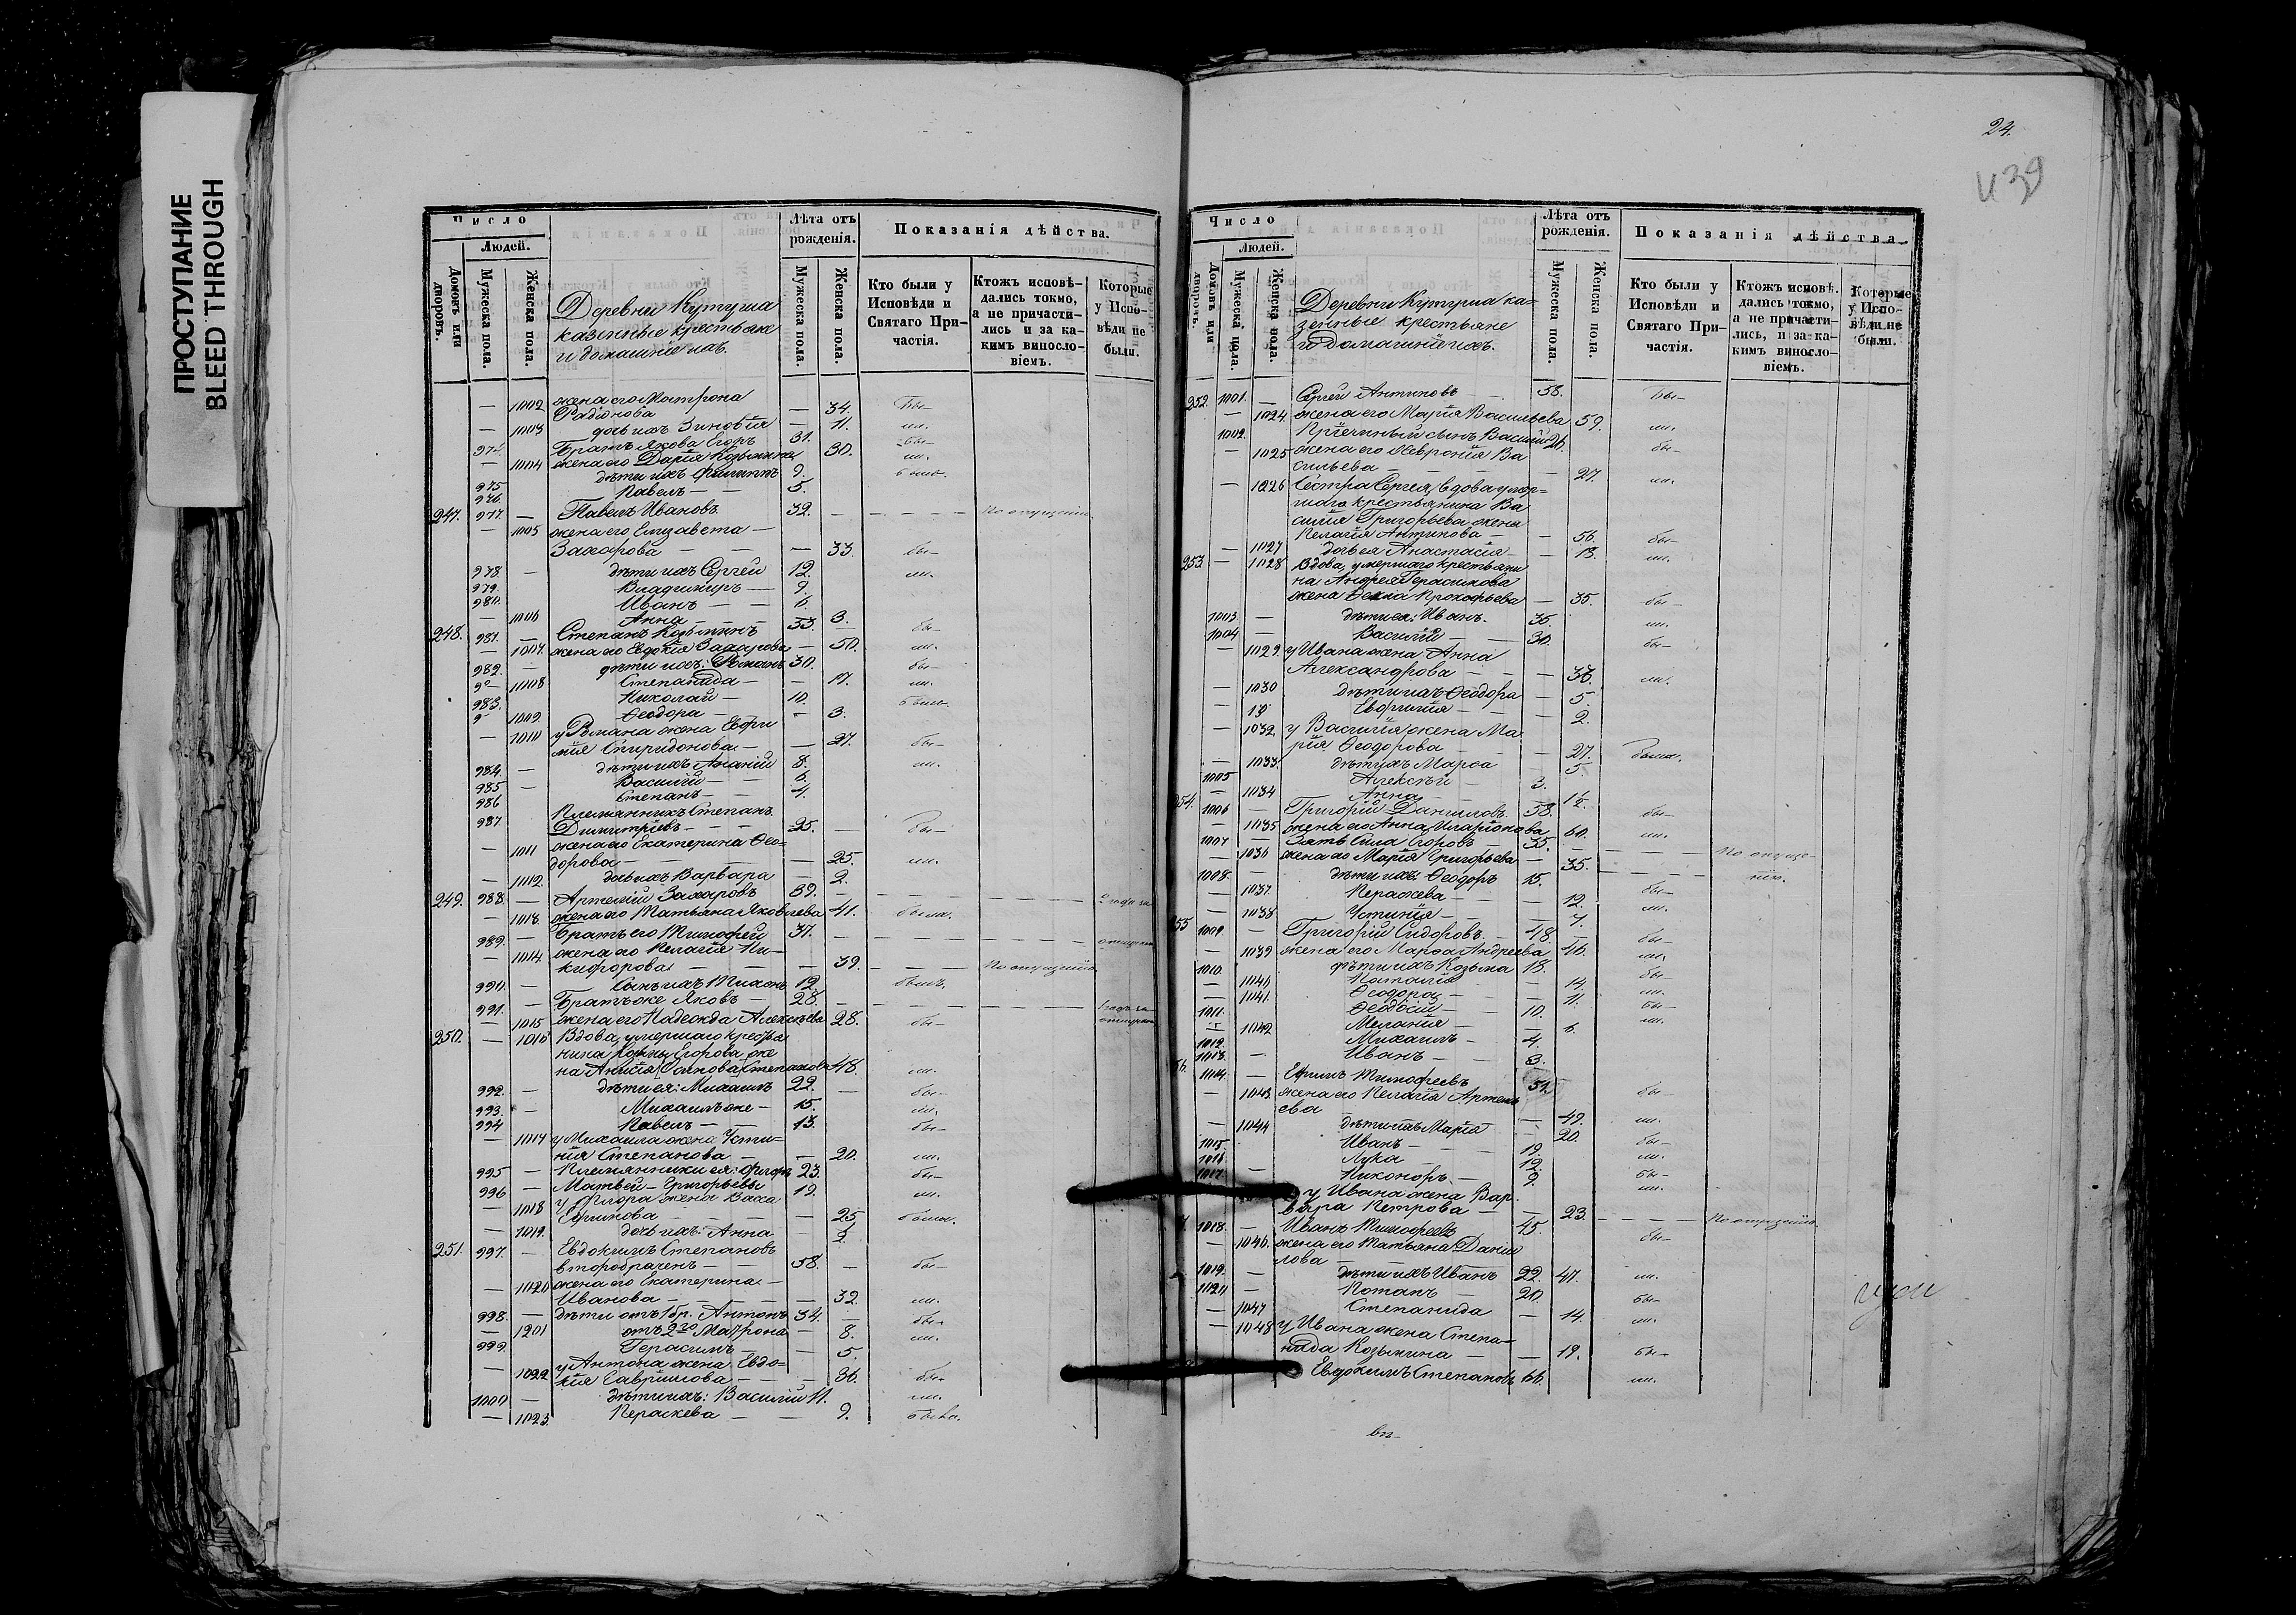 ПРОСТУПАНИЕ
BLEED THROUGH
Число
Людей.
Домовъ или дворовъ.
Мужеска пола.
Женска пола.
Деревни Кутуша
казенные крестьяне
и домашніе ихъ.
Лѣта отъ рожденія.
Мужеска пола.
Женска пола.
Показанія дѣйства.
Кто были у Исповѣди и Святаго При-частія.
Ктожъ исповѣ-дались токмо, а не причасти-лись и за ка-кимъ винословіемъ.
Которые у Испо-вѣди не были.
— 1002 жена его Матрона
Радіонова — 34. бы-
— 1003 дочь ихъ Зиновія — 11. ли.
974 Братъ Якова Егоръ 31. бы-
— 1004 жена его Дарія Козьмина 30. ли.
975 дѣти ихъ Филиппъ 9. были.
976 Павелъ — 5.
247. 977. — Павелъ Ивановъ 32. — По опущенію
— 1005 жена его Елизавета —
Захарова — 33. бы-
978. — дѣти ихъ Сергей 12. ли.
979. Владимиръ — 9.
980. Иванъ — 6.
— 1006 Анна — 3.
248. 981. — Степанъ Козьминъ 53. — бы-
— 1007. жена его Евдокія Захарова — 50. ли.
982. — дѣти ихъ: Романъ 30. бы-
1008 Степанида — 17. ли.
983. Николай — 10. были.
1009. Ѳеодора — 3.
— 1010 у Романа жена Евфи
мія Спиридонова — 27. бы-
984. — дѣти ихъ Ананій 8. ли.
985 — Василій — 6.
986 Степанъ — 4.
987 Племянникъ Степанъ
Димитріевъ — 25. — бы-
— 1011 жена его Екатерина Ѳео-
дорова — 25. ли.
— 1012. дочь ихъ Варвара — 2.
249. 988. — Артемій Захаровъ 39.
— 1013. жена его Татьяна Яковлева 41. была.
989. — Братъ его Тимофей 37. —
— 1014. жена его Пелагія Ни-
кифорова — 39. — По опущенію
990. — Сынъ ихъ Тихонъ 12. былъ.
991. — Братъ же Яковъ — 28. —
— 1015 жена его Надежда Алексѣева 28. бы-
250. — 1016 Вдова умершаго крестья
нина Егорова же
на Анисія Степанова 48. ли.
992. — дѣти ея: Михаилъ 22. бы-
993. — Михаилъ же — 15. ли.
994 Павелъ — 13. бы-
— 1017 у Михаила жена Усти-
нія Степанова — 20. ли.
995 — Племянники ея: Флоръ 23. бы-
996 — Матвей — Григорьевы 19. ли.
— 1018 у Флора жена Васса
Ефимова — 25 была.
— 1019. дочь ихъ: Анна 2.
251. 997. — Евдокимъ Степановъ
второбраченъ — 58. — бы-
— 1020 жена его Екатерина —
Иванова — 32. ли.
998. — дѣти отъ 1 бр. Антонъ 34. — бы-
— 1201 отъ 2го Матрона — 8. ли.
999. Герасимъ — 5.
— 1022 у Антона жена Евдо-
кія Гаврилова — 36. бы-
1000 — дѣти ихъ: Василій 11. ли.
— 1023. Параскева — 9. была.
24.
Число
Людей.
Домовъ или дворовъ.
Мужеска пола.
Женска пола.
Деревни Кутуша ка-
зенные крестьяне
и домашніе ихъ.
Лѣта отъ рожденія.
Мужеска пола.
Женска пола.
Показанія дѣйства.
Кто были у Исповѣди и Святаго При-частія.
Ктожъ исповѣ. дались токмо, а не причасти-лись, и за ка-кимъ винословіемъ.
Которые у Испо-вѣди не были.
252. 1001. — Сергей Антиповъ 58. бы-
— 1024. жена его Марія Васильева 59. ли.
1002. Пріемный сынъ Василій 26. бы-
— 1025 жена его Ѳевронія Ва
сильева — 27. ли.
— 1026 Сестра Сергея, вдова умер-
шаго крестьянина Ва
силія Григорьева жена
Пелагія Антипова — 56. бы-
— 1027 дочь ея Анастасія — 13. ли.
253 — 1028 Вдова умершаго крестьяни
на Андрея Герасимова
жена Ѳекла Прокофьева — 35. бы-
1003. — дѣти ея: Иванъ. 35. ли.
1004 — Василій — 30. бы-
— 1029. у Ивана жена Анна
Александрова — 36. ли.
— 1030 дѣти ихъ Ѳеодора — 5.
Евфимія — 2.
— 1032. у Василія жена Ма
рія Ѳеодорова — 27. были.
— 1033. дѣти ихъ Марѳа — 5.
1005 Алексѣй — 3.
— 1034 Анна — 1½.
254. 1006 — Григорій Даниловъ 58. бы-
1035 жена его Анна Иларіонова 60. ли.
1007 — Зять Сила Егоровъ — 35. — По опуще-
— 1036 жена его Марія Григорьева — 35. — нію.
1008. — дѣти ихъ: Ѳеодоръ 15. бы-
— 1037. Параскева — 12. ли.
— 1038 Устинія — 7.
255 1009. — Григорій Сидоровъ. 48. бы-
— 1039 жена его Марѳа Андреева 46. ли.
1010. дѣти ихъ Козьма 18. бы-
— 1040 Наталія — 14. ли.
— 1041. Ѳеодора — 11. бы-
1011. Ѳеодосій — 10. ли.
1042 Меланія — 6.
1012. Михаилъ — 4.
1013. — Иванъ — 3.
1014. — Ефимъ Тимофеевъ 51. бы-
— 1043. жена его Пелагія Артемь
ева — 49. ли.
— 1044 дѣти ихъ Марія — 20. бы-
1015. Иванъ — 19. ли.
1016. Лука — 12. бы-
1017. — Никоноръ — 9. ли.
у Ивана жена Вар-
вара Петрова — 23. — По опущенію.
1018. — Иванъ Тимофеевъ 45. бы-
— 1046. жена его Татьяна Дани
лова — 47. ли.
1019. — дѣти ихъ Иванъ 22. бы-
1020 — Потапъ — 20. ли.
— 1047 Степанида — 14.
— 1048 у Ивана жена Степа-
нида Козьмина — 19. бы-
Евдокимъ Степановъ 66. ли.